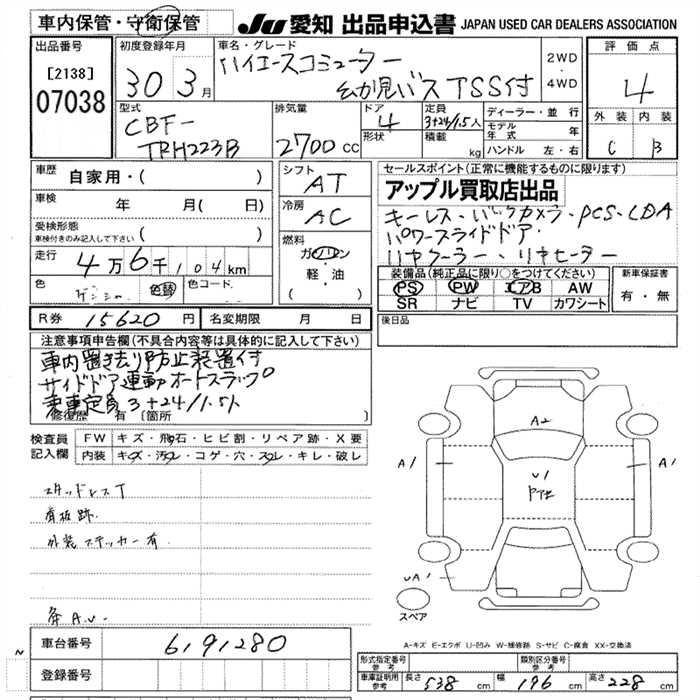 車内保管・守衛保管
JU 愛知 出品申込書 JAPAN USED CAR DEALERS ASSOCIATION
出品番号
[2138]
07038
初度登録年月
30 3月
車名・グレード
ハイエースコミューター
幼児バス TSS付
2WD
・
4WD
評価点
4
外装 内装
C B
型式
CBF-
TRH223B
排気量
2700 cc
ドア
4
形状
定員
3+24/1.5人
積載
kg
ディーラー・並行
モデル年式 年
ハンドル 左・右
車歴
自家用・( )
車検
年 月( 日)
受検形態
車検付きのみ記入して下さい ( )
走行
4万6千104km
色
色替
色コード
シフト
AT
冷房
AC
燃料
ガソリン
軽・油
( )
セールスポイント(正常に機能するものに限ります)
アップル買取店出品
キーレス・バックカメラ・PCS・LDA
パワースライドドア・
リヤクーラー・リヤヒーター
装備品(純正品に限り○をつけてください)
PS PW エアB AW
SR ナビ TV カワシート
新車保証書
有・無
R券 15620円
名変期限 月 日
後日品
注意事項申告欄(不具合内容等は具体的に記入して下さい)
車内置き去り防止装置付
サイドドア連動オートステップ
乗車定員3+24/1.5人
修復歴 有 〔箇所
検査員記入欄
FW キズ・飛石・ヒビ割・リペア跡・X要
内装 キズ・汚れ・コゲ・穴・スレ・キレ・破レ
スタッドレスT
看板跡
外装ステッカー有
A2
A1
U1
A1
UA1
スペア
A-キズ E-エクボ U-凹み W-補修跡 S-サビ C-腐食 XX-交換済
車台番号 6191280
登録番号
形式指定番号参考
類別区分番号参考
車庫証明用参考 長さ 538 cm 幅 196 cm 高さ 228 cm